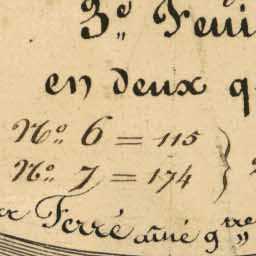 3.e Feui
en deux q
N.o 6 = 115
N.o 7 = 174
Ferré aîné g.tre